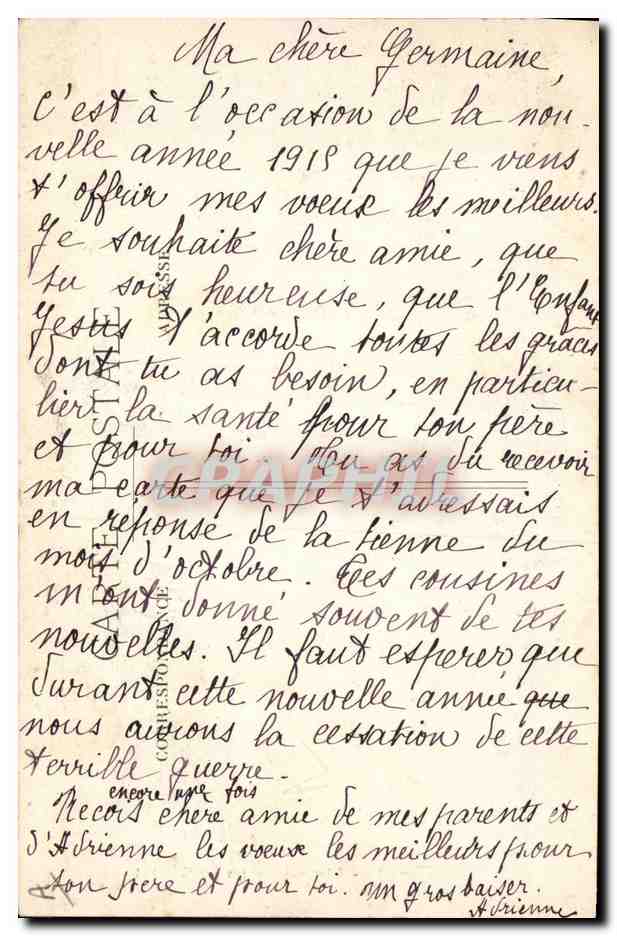 Ma chère Germaine,
C'est à l'occasion de la nou-
velle année 1915 que je viens
t'offrir mes voeux les meilleurs.
Je souhaite chère amie, que
tu sois heureuse, que l'Enfant
Jesus t'accorde toutes les grâces
dont tu as besoin, en particu-
lier la santé pour ton père
et pour toi. Tu as du recevoir
ma carte que je t'adressais
en réponse de la tienne du
mois d'octobre. Tes cousines
m'ont donné souvent de tes
nouvelles. Il faut esperer que
durant cette nouvelle année que
nous aurons la cessation de cette
terrible guerre.
encore une fois
Recois chere amie de mes parents et
d'Adrienne les voeux les meilleurs pour
ton pere et pour toi. un gros baiser.
Adrienne
CARTE POSTALE
CORRESPONDANCE
ADRESSE